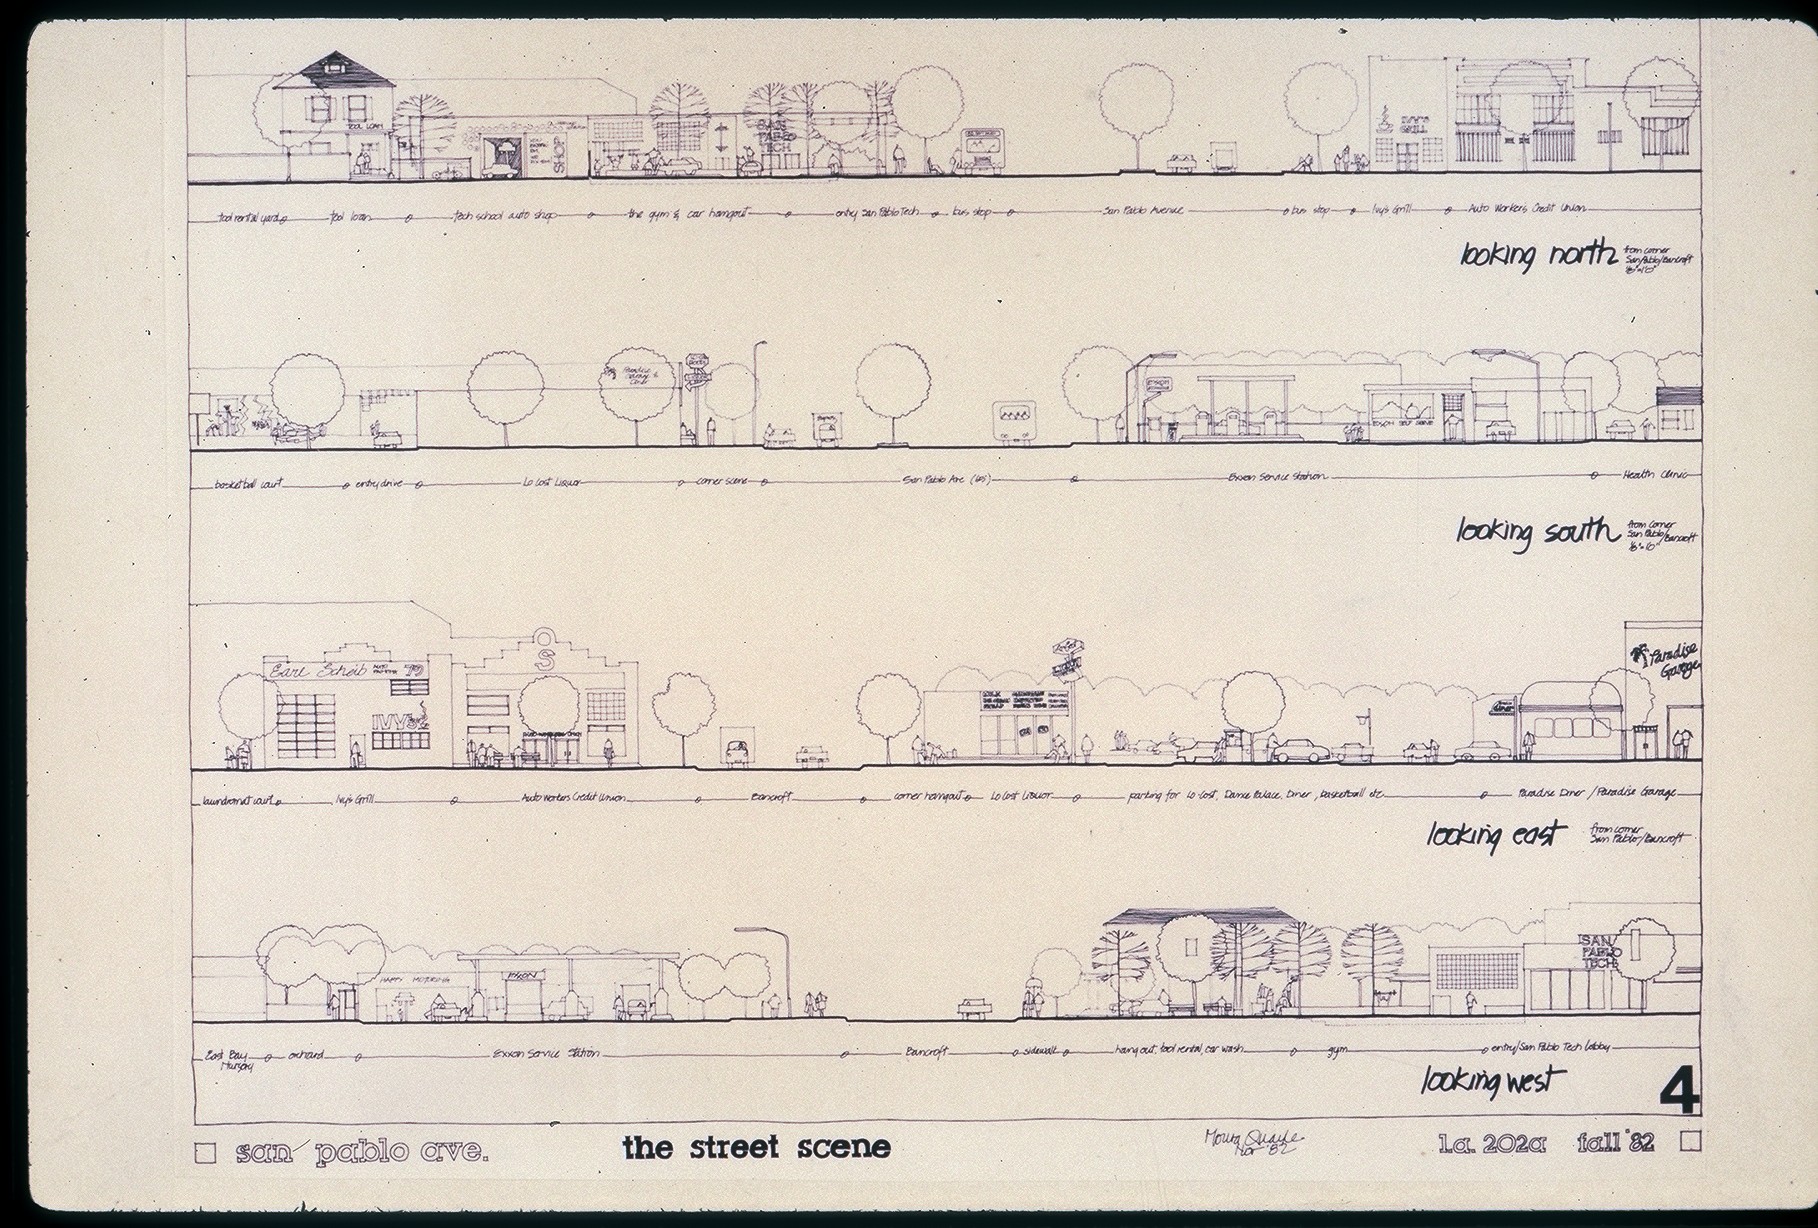 TOOL LOAN
SHOP
SAN
PABLO
TECH
IVY'S
GRILL
tool rental yard
tool loan
tech school auto shop
the gym & car hangout
entry San Pablo Tech
bus stop
San Pablo Avenue
bus stop
Ivy's Grill
Auto Workers Credit Union
looking north
from corner
San Pablo/Bancroft
1/8"=1'0"
Paradise
Garage &
Diner
EXXON
EXXON SELF SERVE
basketball court
entry drive
Lo Cost Liquor
corner scene
San Pablo Ave (65')
Exxon Service Station
Health Clinic
looking south
from corner
San Pablo/Bancroft
1/8"=1'0"
Earl Scheib
79
IVY's
OS
AUTO WORKERS CREDIT UNION
diner
Paradise
Garage
laundromat court
Ivy's Grill
Auto Workers Credit Union
Bancroft
corner hangout
Lo Cost Liquor
parking for Lo Cost, Dance Palace, Diner, basketball etc
Paradise Diner / Paradise Garage
looking east
from corner
San Pablo/Bancroft
HAPPY MOTORING
EXXON
SAN
PABLO
TECH
East Bay
Nursery
orchard
Exxon Service Station
Bancroft
sidewalk
hangout, tool rental, car wash
gym
entry/San Pablo Tech Lobby
looking west
4
san pablo ave.
the street scene
Moura Quayle
Nov '82
l.a. 202a fall '82